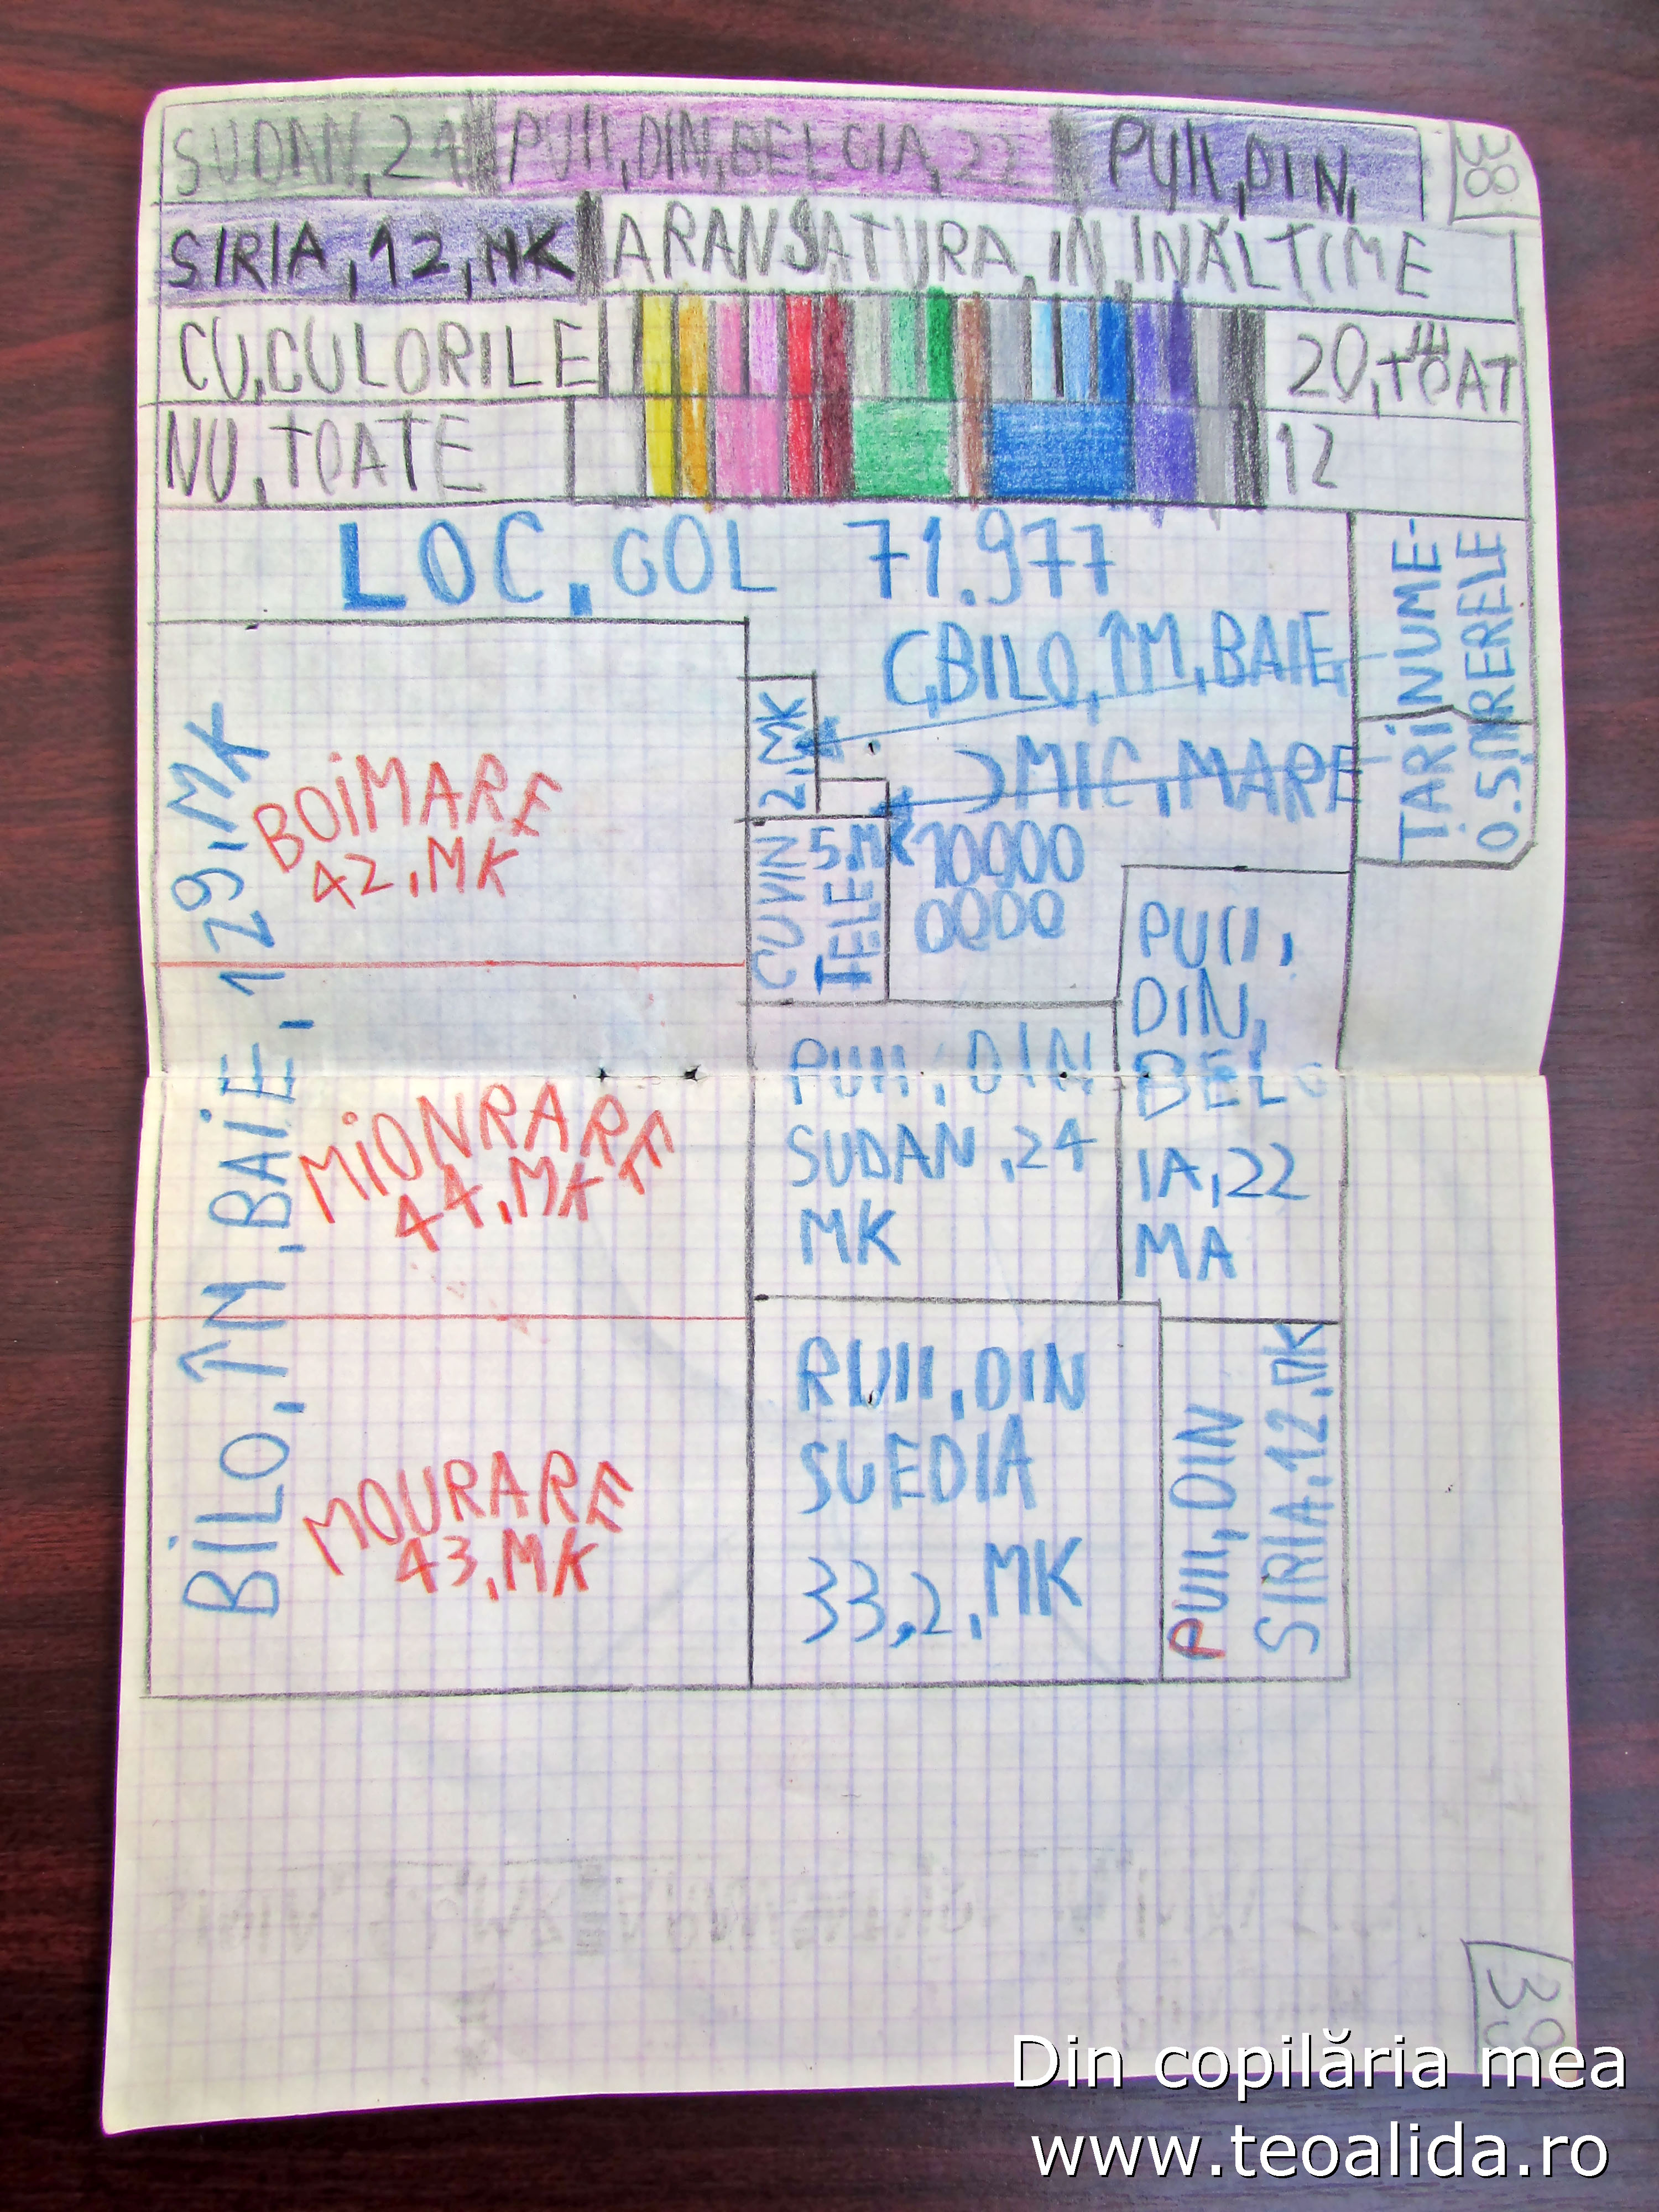 SUDAN,24 PUII,DIN,BELGIA,22 PUII,DIN,
38
SIRIA,12,MK ARANSATURA,IN,INĂLTIME
CU,CULORILE 20,TOAT
NU,TOATE 12
LOC.GOL 71.977
ȚARI NUME-
RERELE
0.5,
C,BILO,ÎM,BAIE,
MIC,MARE
2,MK
CUVIN
TELE
5,MK
10000
0000
BILO,ÎM,BAIE,129,MK
BOIMARE
42,MK
MIONRARE
44,MK
MOURARE
43,MK
PUII,DIN
SUDAN,24
MK
PUII,
DIN,
BELG
IA,22
MA
RUII,DIN
SUEDIA
33,2,MK
PUII,DIN
SIRIA,12,MK
39
Din copilăria mea
www.teoalida.ro